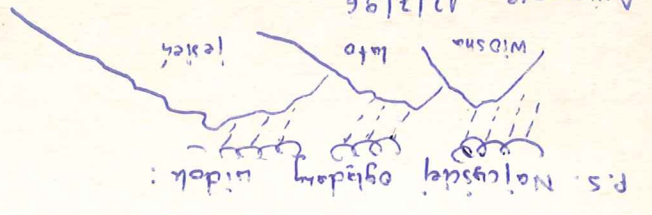 P.S. Najczęściej oglądany widok:
wiosna lato jesień
12/7/96